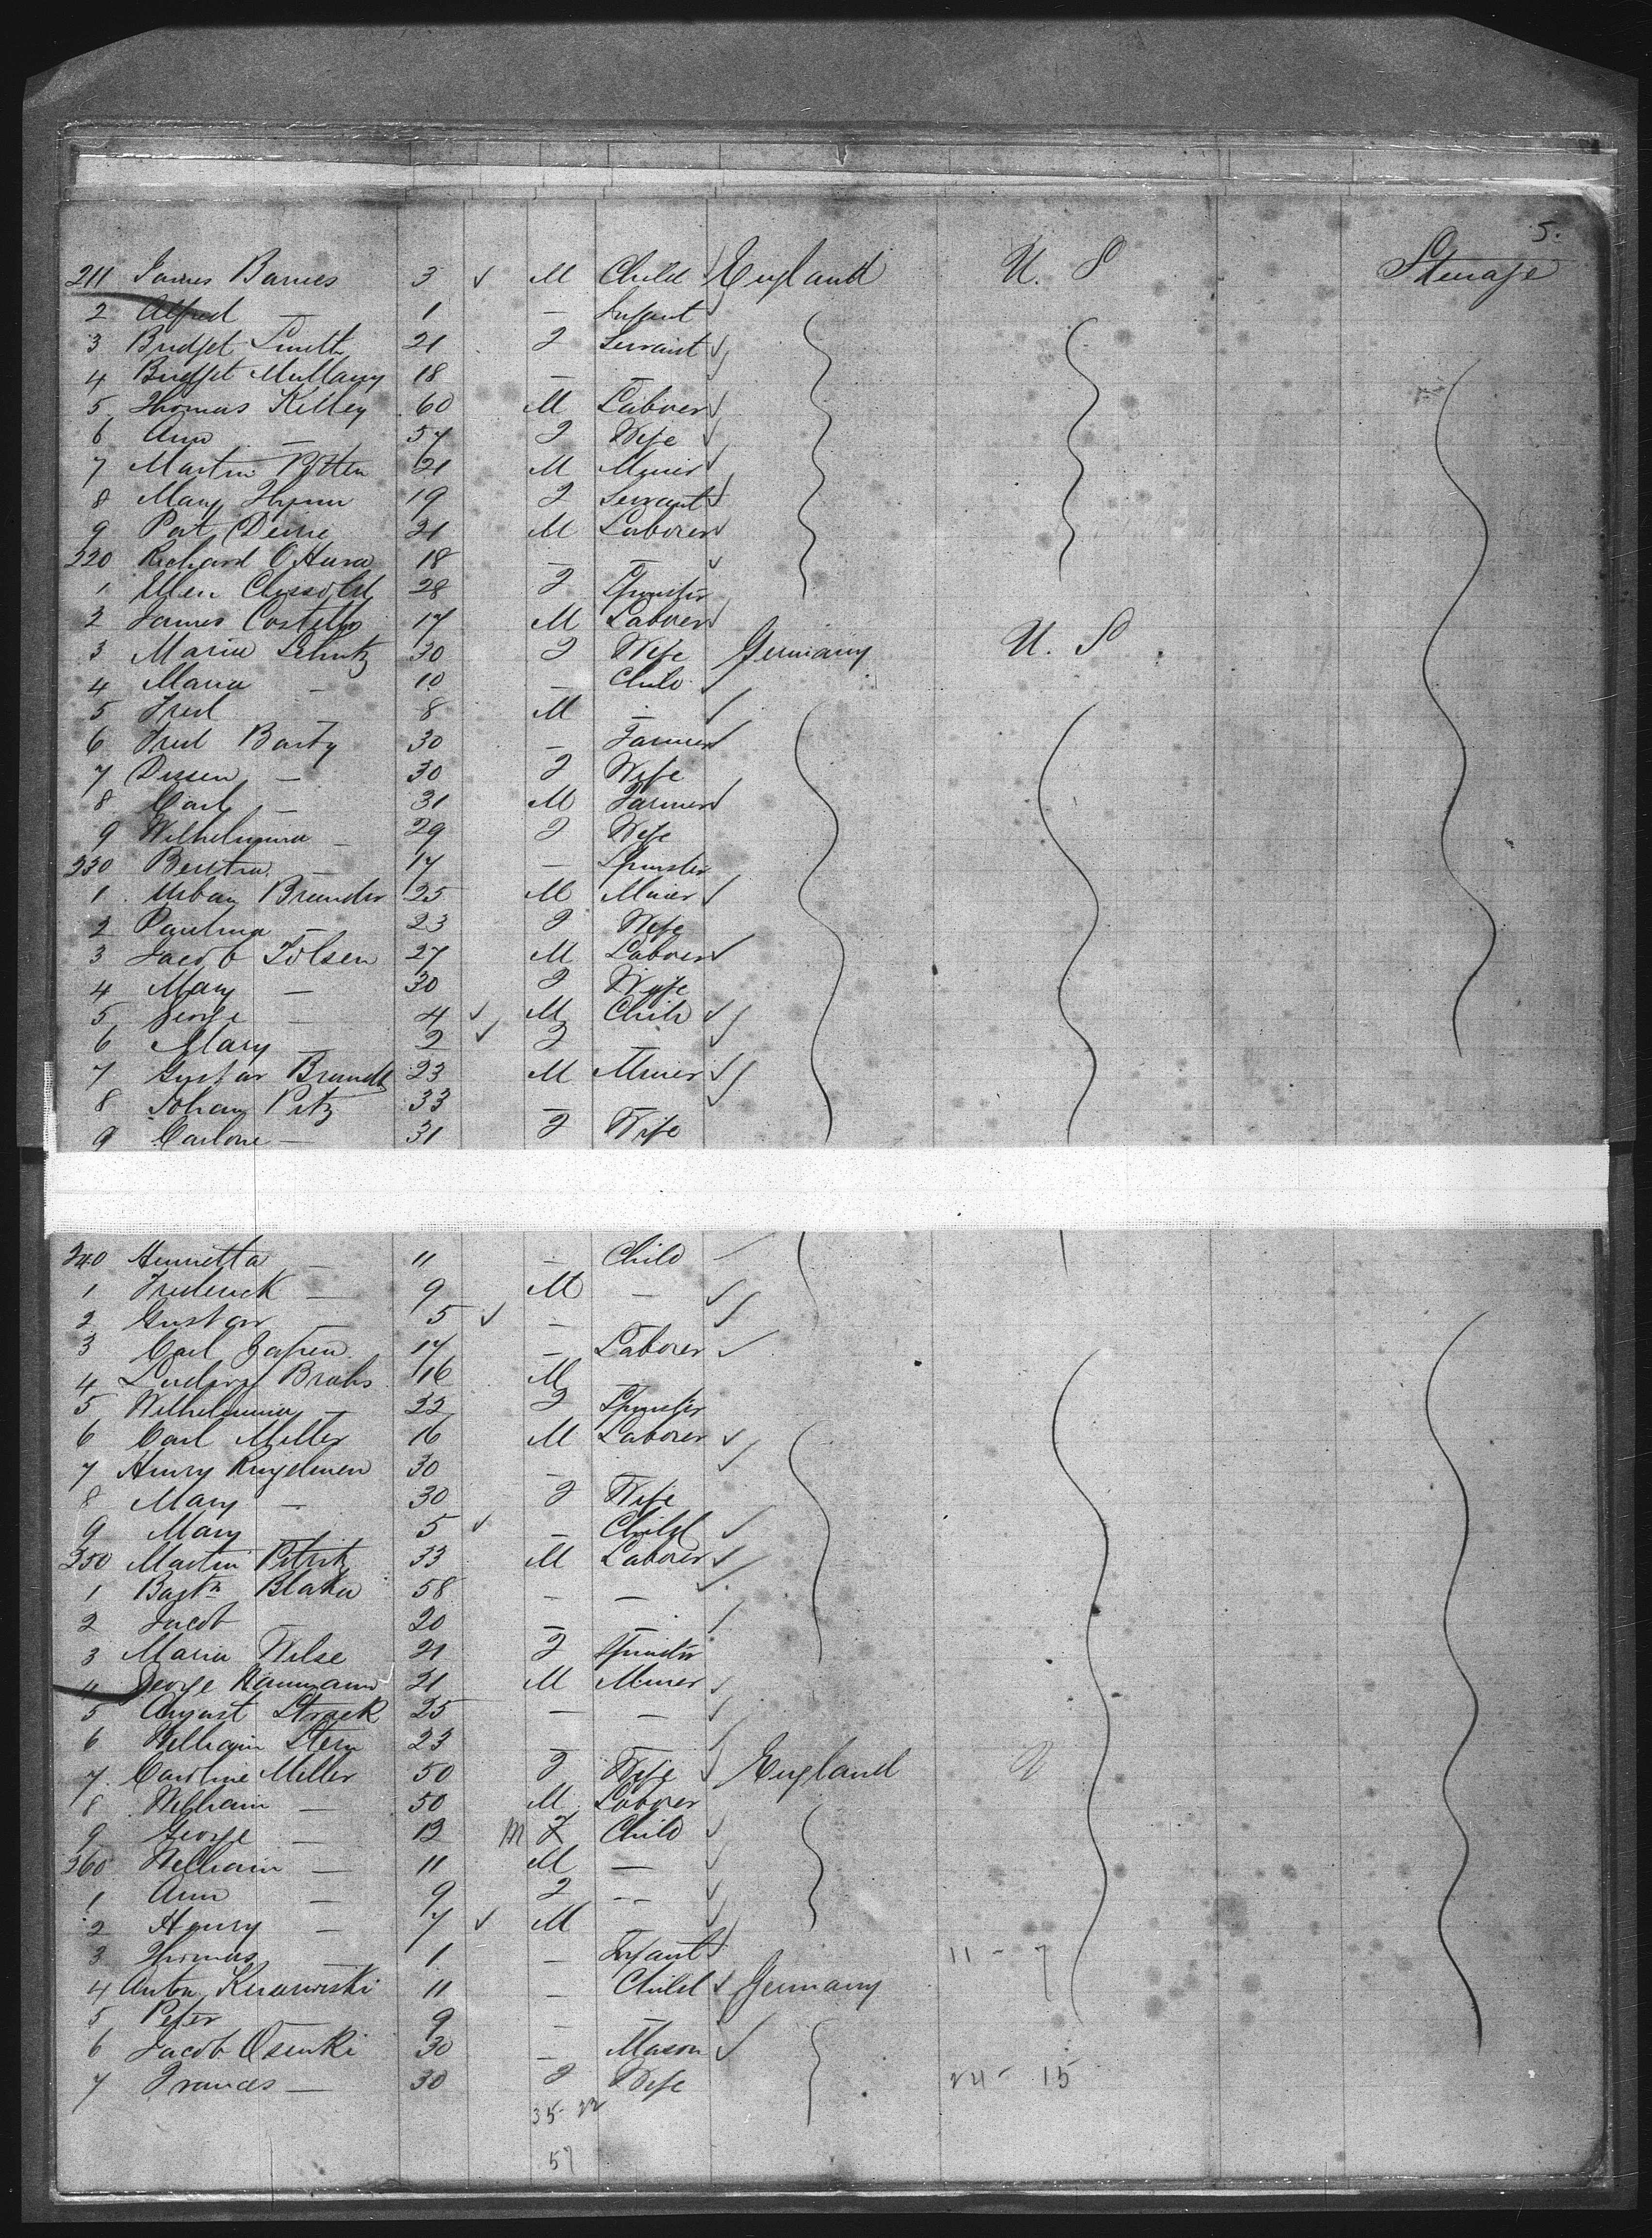 5.
211 James Barnes 3 ✓ M Child England U. S Steerage
2 Alfred — 1 — Infant
3 Bridget Smith 21 F Servant
4 Bridget Mullany 18 — —
5 Thomas Kelley 60 M Laborer
6 Ann — 57 F Wife
7 Martin 21 M Miner
8 Mary Flynn 19 F Servant
9 Pat 21 M Laborer
220 Richard O'Hara 18 — —
1 Ellen 28 F Spinster
2 James Costello 17 M Laborer
3 Maria Schutz 30 F Wife Germany U. S
4 Maria — 10 — Child
5 Fred 8 M —
6 Fred Barty 30 — Farmer
7 — 30 F Wife
8 Carl — 31 M Farmer
9 Wilhelmina — 29 F Wife
230 — 17 — Spinster
1 Urban 25 M Miner
2 Paulina — 23 F Wife
3 Jacob Tolsen 27 M Laborer
4 Mary — 30 F Wife
5 George — 4 ✓ M Child
6 Mary — 2 ✓ F —
7 Gustav Brandt 23 M Miner
8 Johan Pitz 33 — —
9 — 31 F Wife
240 Henrietta — 11 — Child
1 Frederick — 9 M —
2 Gustav — 5 ✓ —
3 Carl 17 — Laborer
4 Ludwig Brahs 16 M
5 Wilhelmina — 22 F Spinster
6 Carl Miller 16 M Laborer
7 Henry 30 —
8 Mary — 30 F Wife
9 Mary 5 ✓ — Child
250 Martin 33 M Laborer
1 58 — —
2 Jacob — 20 — —
3 Maria Wilse 21 F Spinster
4 George 21 M Miner
5 August Strack 25 — —
6 William Stern 23 — —
7 Caroline Miller 50 F Wife England
8 William — 50 M Laborer
9 George — M Child
260 William — 11 M —
1 Ann — 9 F —
2 Henry — 7 ✓ M
3 Thomas — 1 — Infant 11 - 7
4 Anton 11 — Child Germany
5 Peter — 9 — —
6 Jacob 30 — Mason
7 Frances — 30 F Wife 24 - 15
35 - 22
57